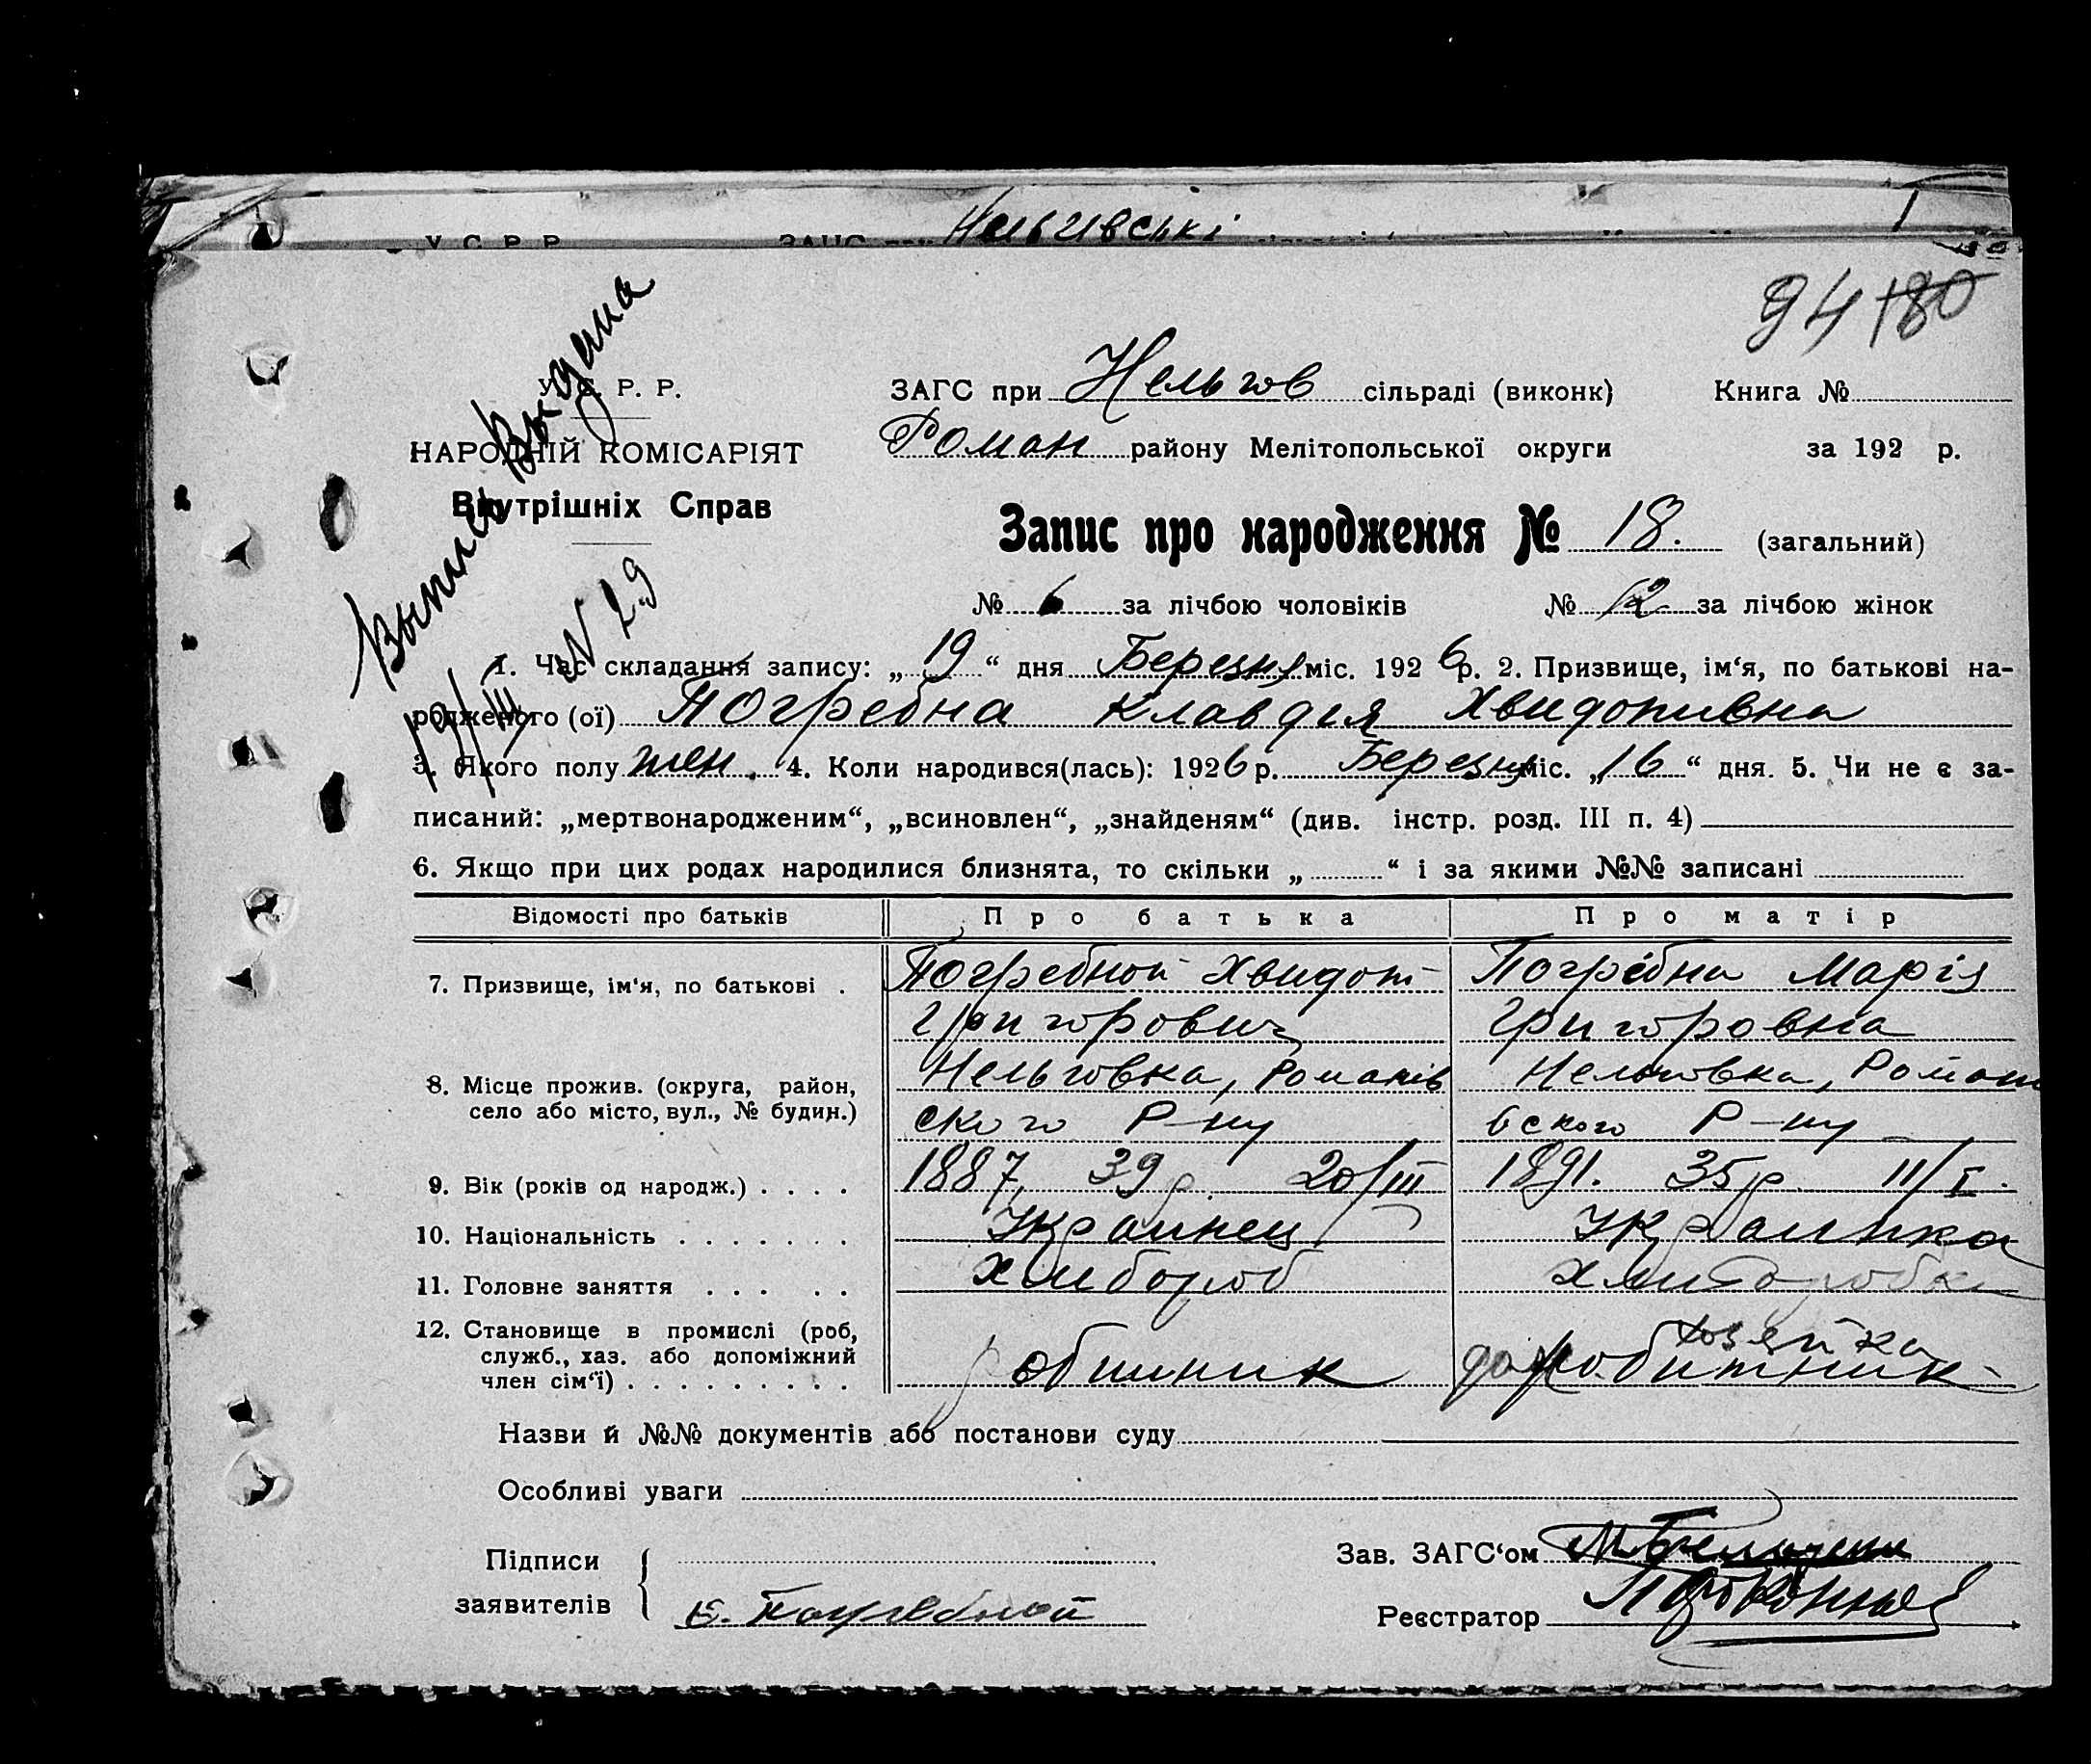 Нельгивські
94 180
Выпись Выдана
19/III N 29
У. С. Р. Р.
НАРОДНІЙ КОМІСАРІЯТ
Внутрішніх Справ
ЗАГС при Нельгов сільраді (виконк) Книга №
Роман району Мелітопольської округи за 192 р.
Запис про народження № 18. (загальний)
№ 6 за лічбою чоловіків № 12 за лічбою жінок
1. Час складання запису: „19“ дня Березня міс. 1926 р. 2. Призвище, ім‘я, по батькові на-
родженого (ої) Погребна Клавдия Хвидотивна
3. Якого полу жен. 4. Коли народився(лась): 1926 р. Березня міс. „16“ дня. 5. Чи не є за-
писаний: „мертвонародженим“, „всиновлен“, „знайденям“ (див. інстр. розд. III п. 4)
6. Якщо при цих родах народилися близнята, то скільки „ “ і за якими №№ записані
Відомості про батьків Про батька Про матір
7. Призвище, ім‘я, по батькові . Погребной Хвидот Погрібна Марія
Григорович Григоровна
8. Місце прожив. (округа, район, Нельговка, Романів Нельговка, Роман
село або місто, вул., № будин.) ского Р-ну вского Р-ну
9. Вік (років од народж.) . . . . 1887, 39 р. 20/III 1891. 35 р. 11/I.
10. Національність . . . . . . . Украинец Украинка
11. Головне заняття . . . . . Хлибороб Хлиборобка
12. Становище в промислі (роб,
служб., хаз. або допоміжний хозяйка
член сім‘ї) . . . . . . . . . робитник робитник
Назви й №№ документів або постанови суду
Особливі уваги
Підписи
заявителів Погребной
Зав. ЗАГС‘ом
Реєстратор